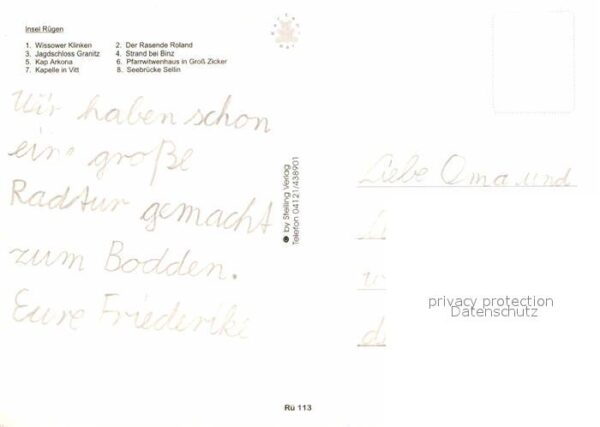 Insel Rügen
1. Wissower Klinken 2. Der Rasende Roland
3. Jagdschloss Granitz 4. Strand bei Binz
5. Kap Arkona 6. Pfarrwitwenhaus in Groß Zicker
7. Kapelle in Vitt 8. Seebrücke Sellin
Wir haben schon
eine große
Radtur gemacht
zum Bodden.
Eure Friederike
by Stelling Verlag
Telefon 04121/438901
Liebe Oma und
privacy protection
Datenschutz
Rü 113